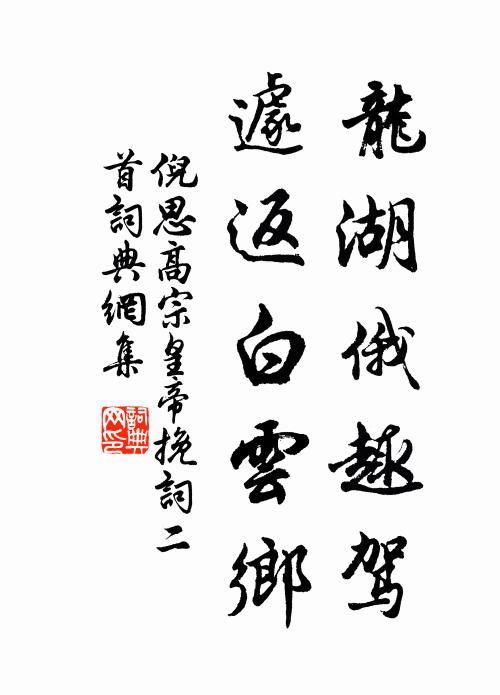 龍湖俄趣駕
遽返白雲鄉
倪思高宗皇帝挽詞二
首詞典網集
詞典网印